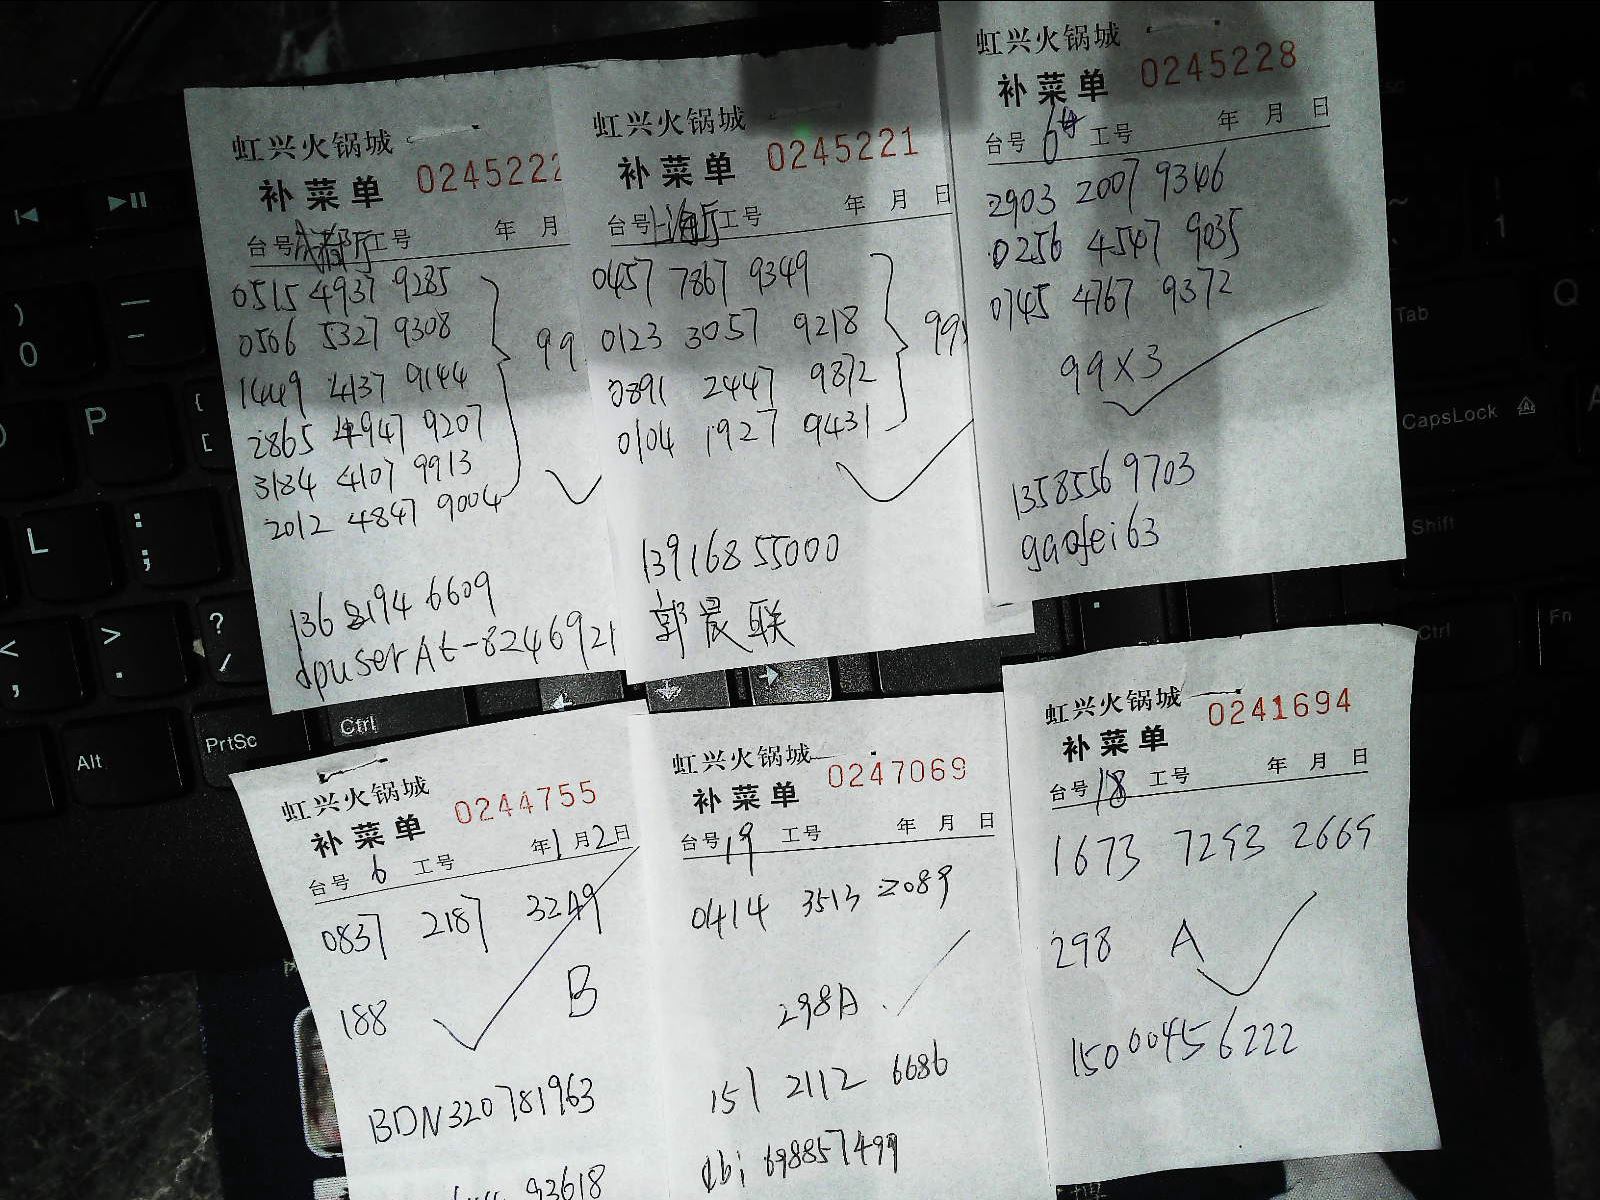 虹兴火锅城
补菜单 0245222
台号 成都厅 工号 年 月
0515 4937 9285
0506 5327 9308
1449 4137 9144
2865 4947 9207
3184 4107 9913
2012 4847 9004
99
136 8194 6609
dpuserAt-8246921
虹兴火锅城
补菜单 0245221
台号 上海厅 工号 年 月 日
0457 7867 9349
0123 3057 9218
0891 2447 9872
0104 1927 9431
99
13916855000
郭晨联
虹兴火锅城
补菜单 0245228
台号 64 工号 年 月 日
2903 2007 9346
0256 4547 9035
0745 4767 9372
99X3
13585569703
gaofei63
虹兴火锅城
补菜单 0244755
台号 6 工号 年1月2日
0837 2187 3249
188 B
BDN320781963
93618
虹兴火锅城
补菜单 0247069
台号 19 工号 年 月 日
0414 3513 2089
298A
151 2112 6686
698857499
虹兴火锅城
补菜单 0241694
台号 18 工号 年 月 日
1673 7293 2669
298 A
15000456222
0
P
L
:
;
<
,
>
.
?
/
Alt
PrtSc
Ctrl
Tab
Q
CapsLock
A
Shift
Ctrl
Fn
1